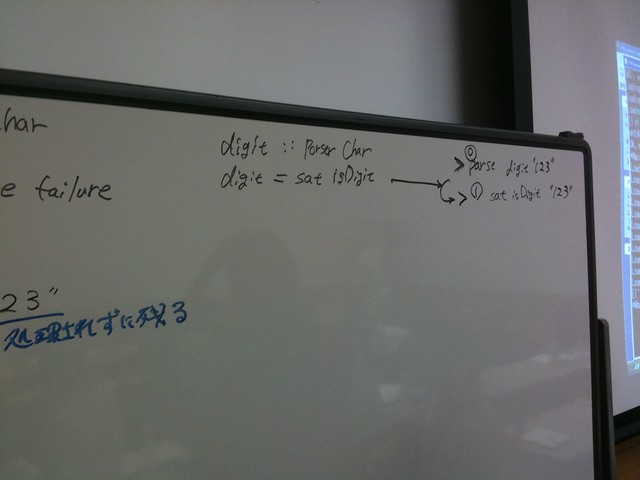 har
e failure
23"
処理されずに残る
digit :: Parser Char
digit = sat isDigit
⓪
> parse digit "123"
> ① sat isDigit "123"